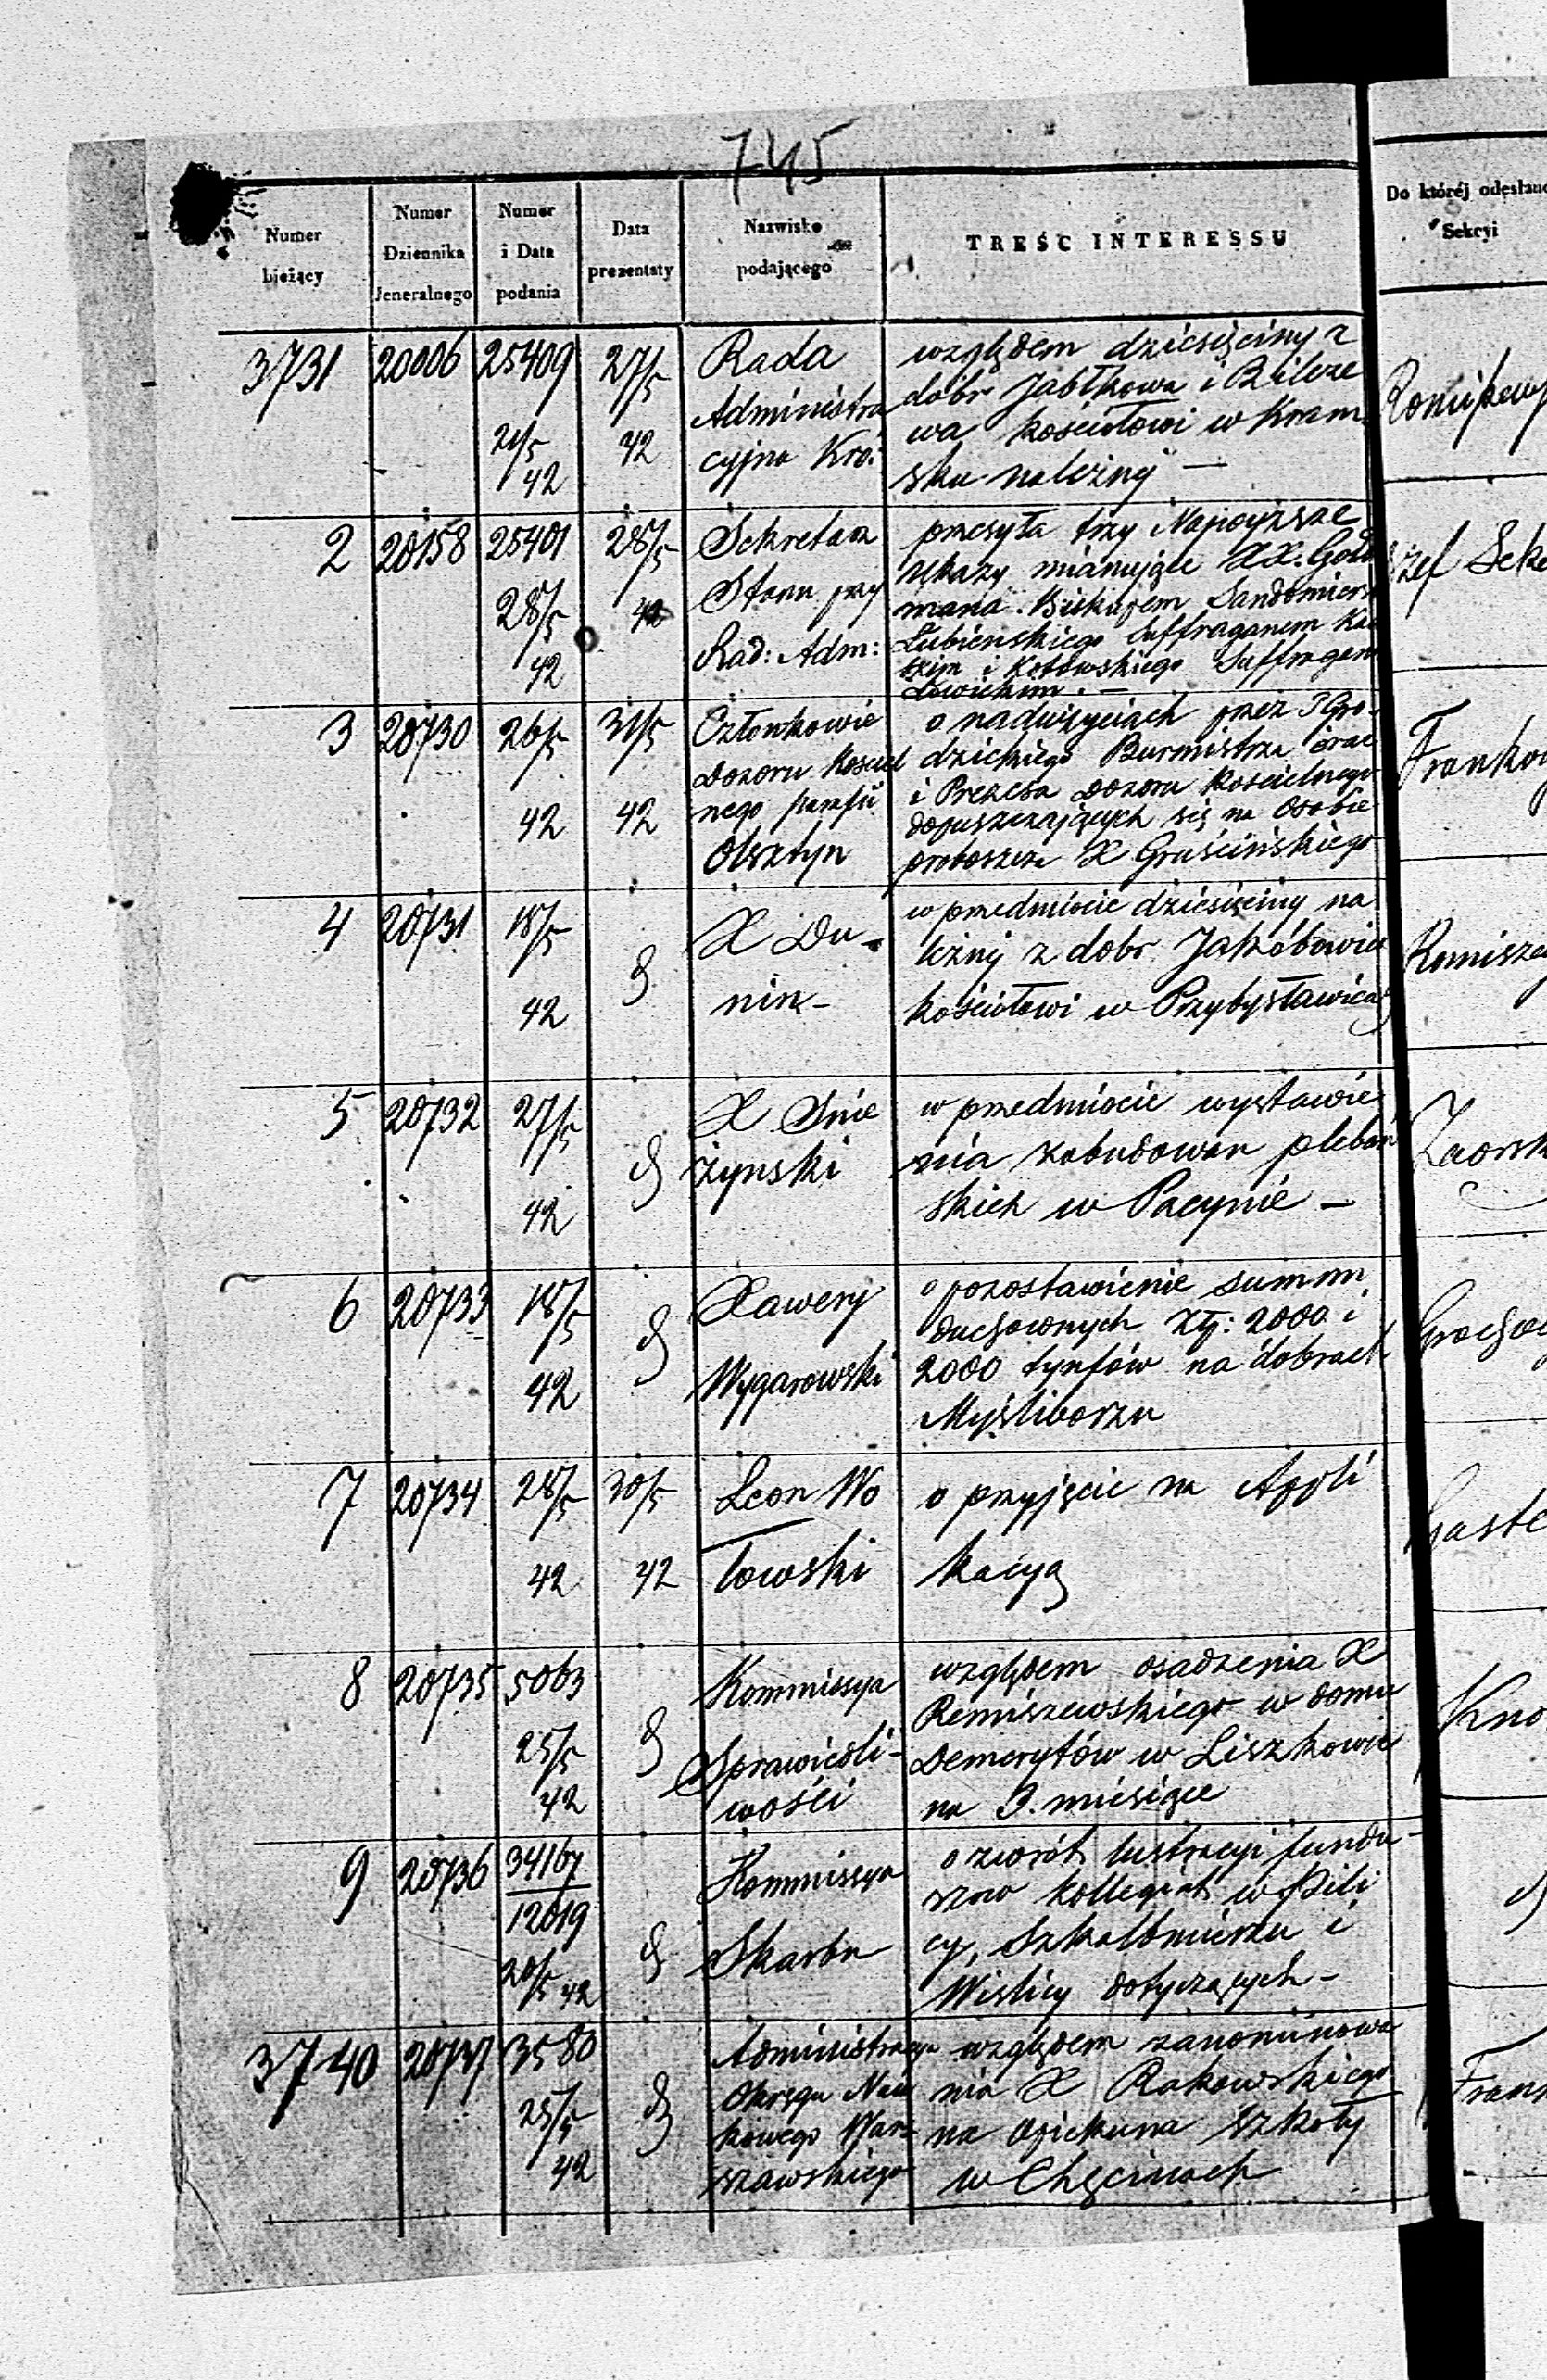 745
Numer bieżący
Numer Dziennika Jeneralnego
Numer i Data podania
Data prezentaty
Nazwisko podającego
TREŚC INTERESSU
Do któréj odesłano Sekcyi
3731 20006 25409 21/5 42 27/5 42
Rada
Administra
cyjna Kró:
względem dziesięciny z
dóbr Jabłkowa i Bilcze
wa kościołowi w Kram
sku należnej —
2 20158 25401 28/5 42 28/5 42
Sekretarz
Stanu przy
Rad: Adm:
przesyła trzy Najwyższe
Ukazy mianujące XX. Gold
mana Biskupem Sandomiers
Łubieńskiego Suffraganem Ka
skim i Kotowskiego Suffragan
Łowickim. —
Szef Sek
3 20730 26/5 42 31/5 42
Członkowie
Dozoru Kościel
nego parafii
Olsztyn
o nadużyciach przez
dzickiego Burmistrza oraz
i Prezesa Dozoru Kościelnego
dopuszczających się na Osobie
proboszcza X Gruścińskiego
4 20731 18/5 42
X Du-
nin-
w przedmiocie dziesięciny na
leżnej z dobr Jakóbowice
kościołowi w Przybysławica
5 20732 27/5 42
X Śnie
żynski
w przedmiocie wystawie
nia zabudowan plebań
skich w Pacynie —
6 20733 18/5 42
Xawery
Wygarowski
o pozostawienie summ
duchownych Złp: 2000 i
2000 tynfów na dobrach
Myśliborzu
7 20734 28/5 42 30/5 42
Leon Wo
łowski
o przyjęcie na Appli
kacyą
8 20735 5063 25/5 42
Kommissya
Sprawiedli-
wości
względem osadzenia X
Remiszewskiego w domu
Demerytów w Liszkowie
na 3. miesiące
9 20736 34167/12019 20/5 42
Kommissya
Skarbu
o zwrót lustracyi fundu-
szow kollegiat w Pili
cy, Szkalbmierzu i
Wislicy dotyczących —
3740 20737 3580 25/5 42
Administracya
Okręgu Nau
kowego War=
szawskiego
względem zanominowa
nia X Rakowskiego
na Opiekuna Szkoły
w Chęcinach